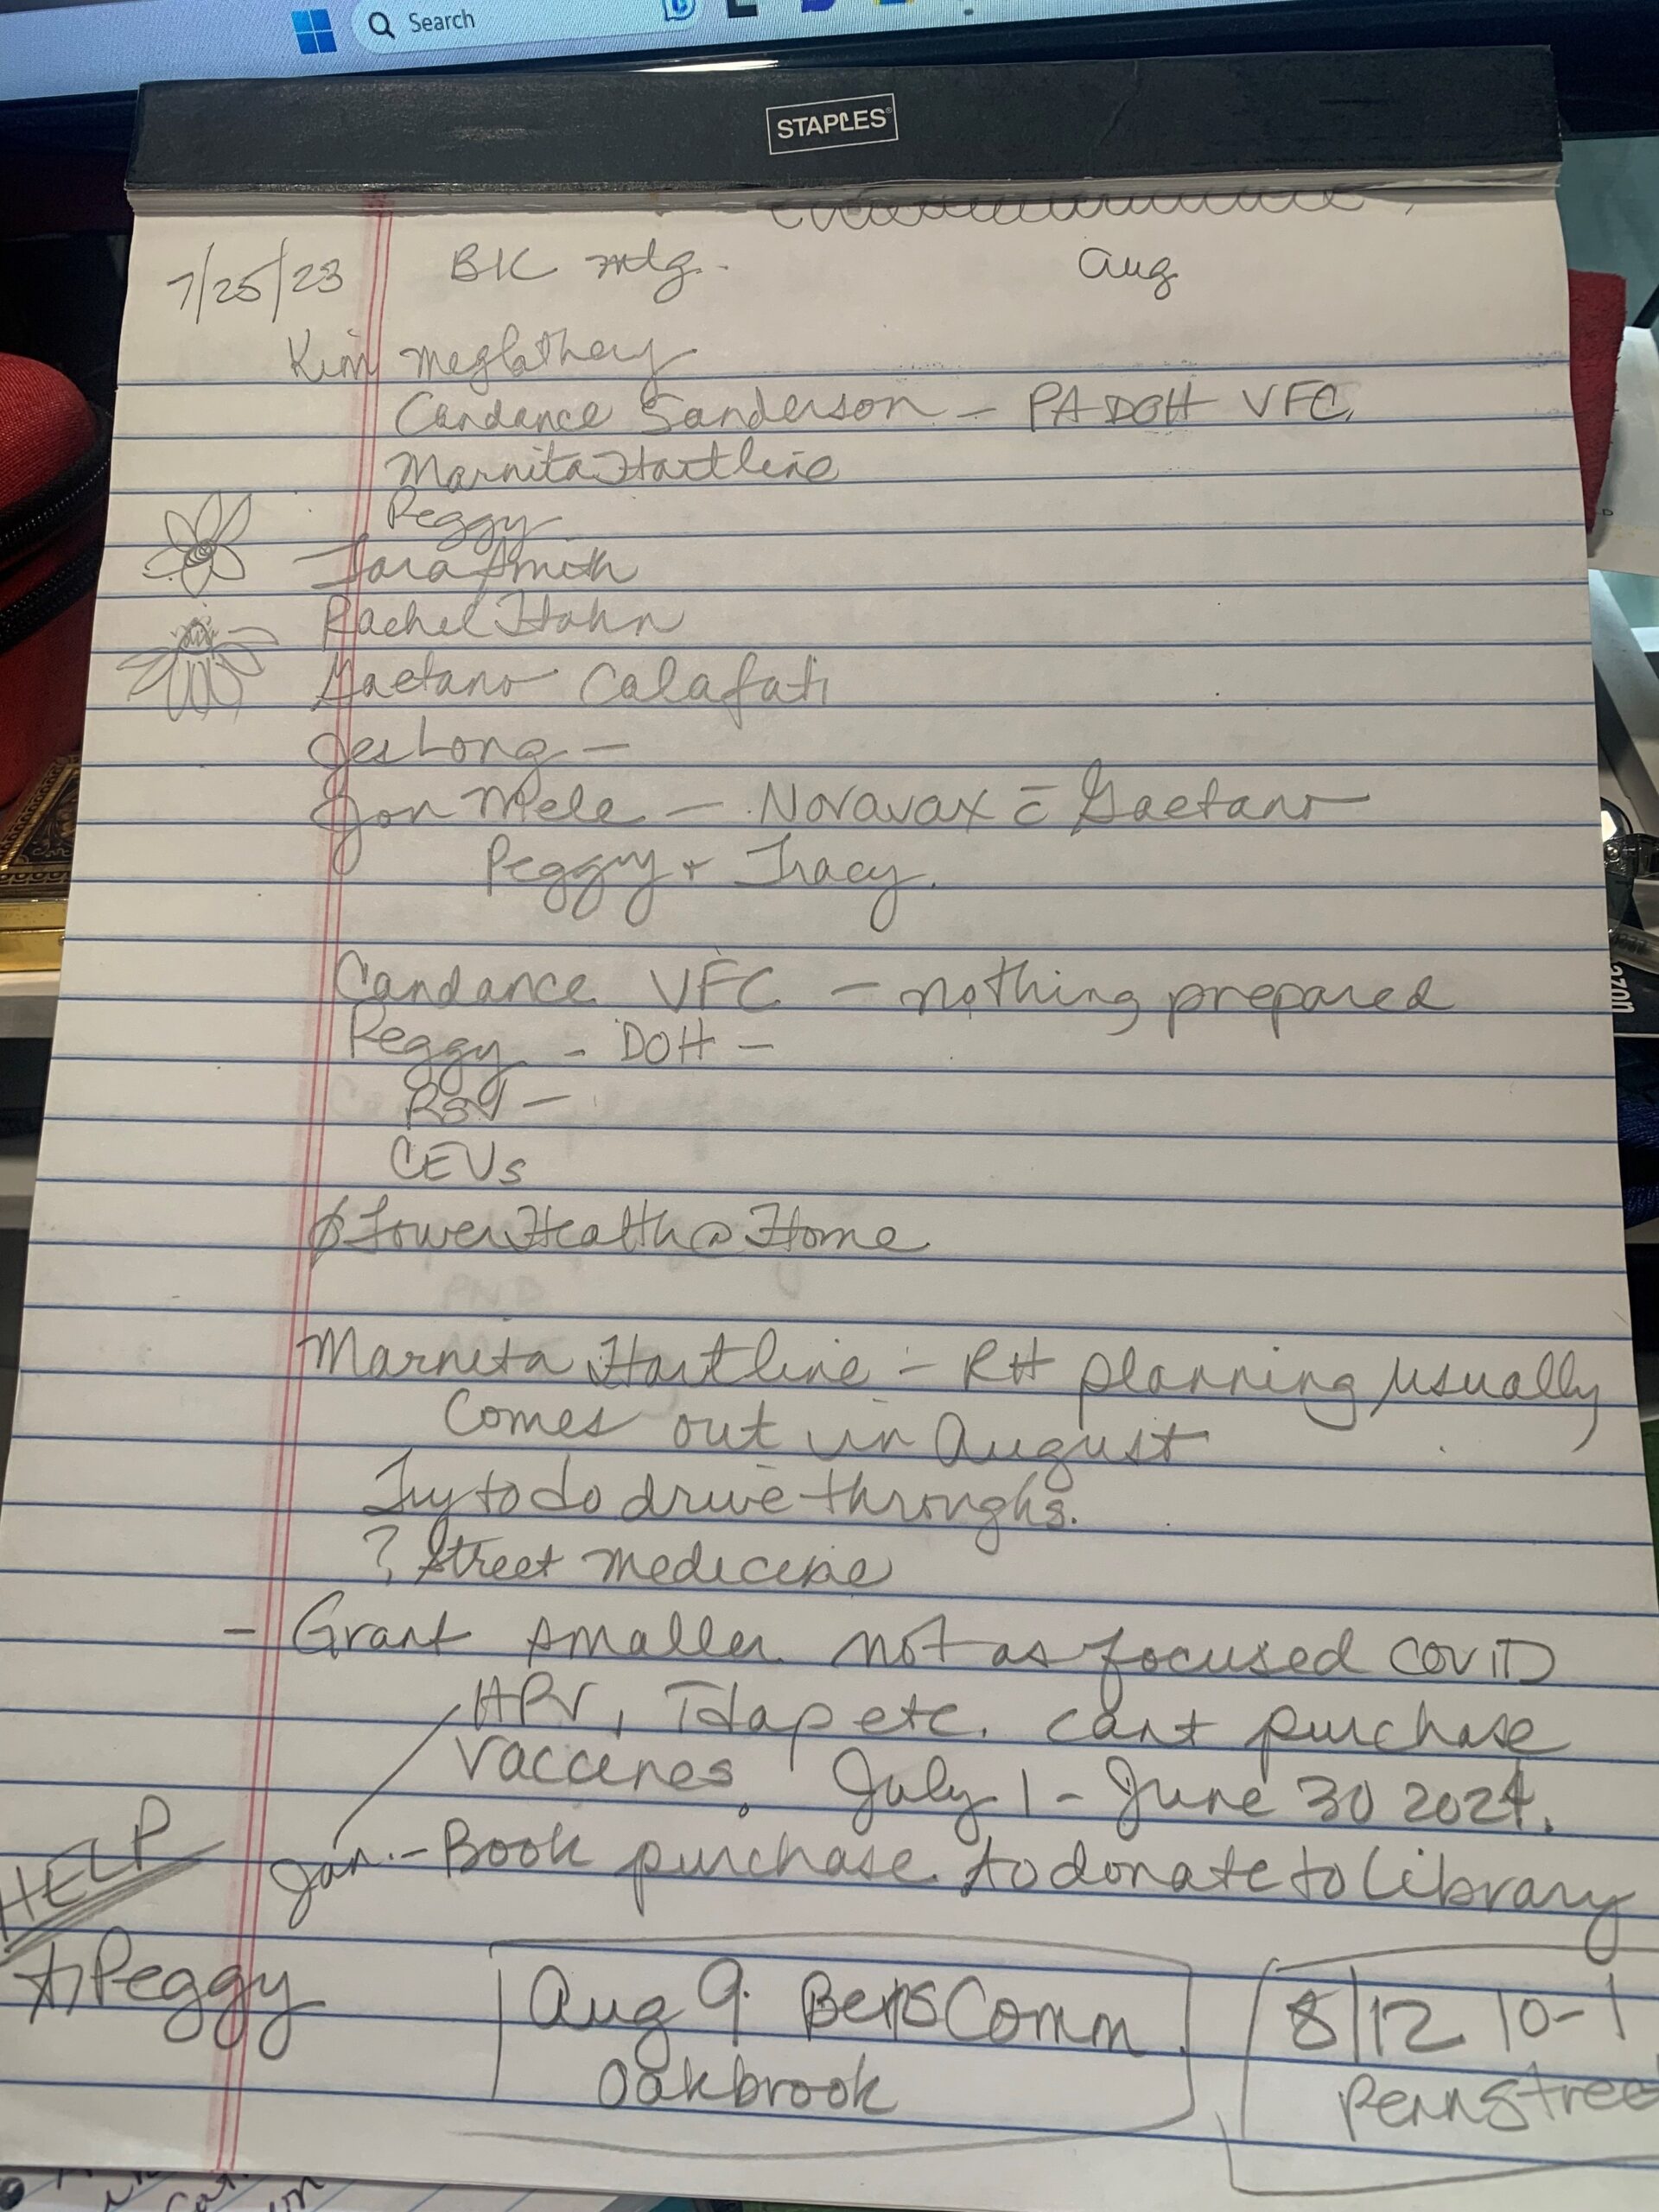 Search
STAPLES
7/25/23 BK mtg. Aug
Kim Meglathery
Candance Sanderson - PA DOH VFC.
Marnita Hartline
Peggy
Tara Smith
Rachel Hahn
Gaetano Calafati
Jes Long -
Jon Mele - Novavax c̄ Gaetano
Peggy + Tracy.
Candance VFC - nothing prepared
Peggy - DOH -
RSV -
CEVs
TowerHealth@Home
Marnita Hartline - RH planning usually
comes out in August
Try to do drive-throughs.
? Street medicine
- Grant smaller. not as focused COVID
HPV, Tdap etc. cant purchase
vaccines. July 1 - June 30 2024.
Jan. - Book purchase. to donate to library
HELP
Peggy
Aug 9. Berks Comm
Oakbrook
8/12 10-1
Pennstree